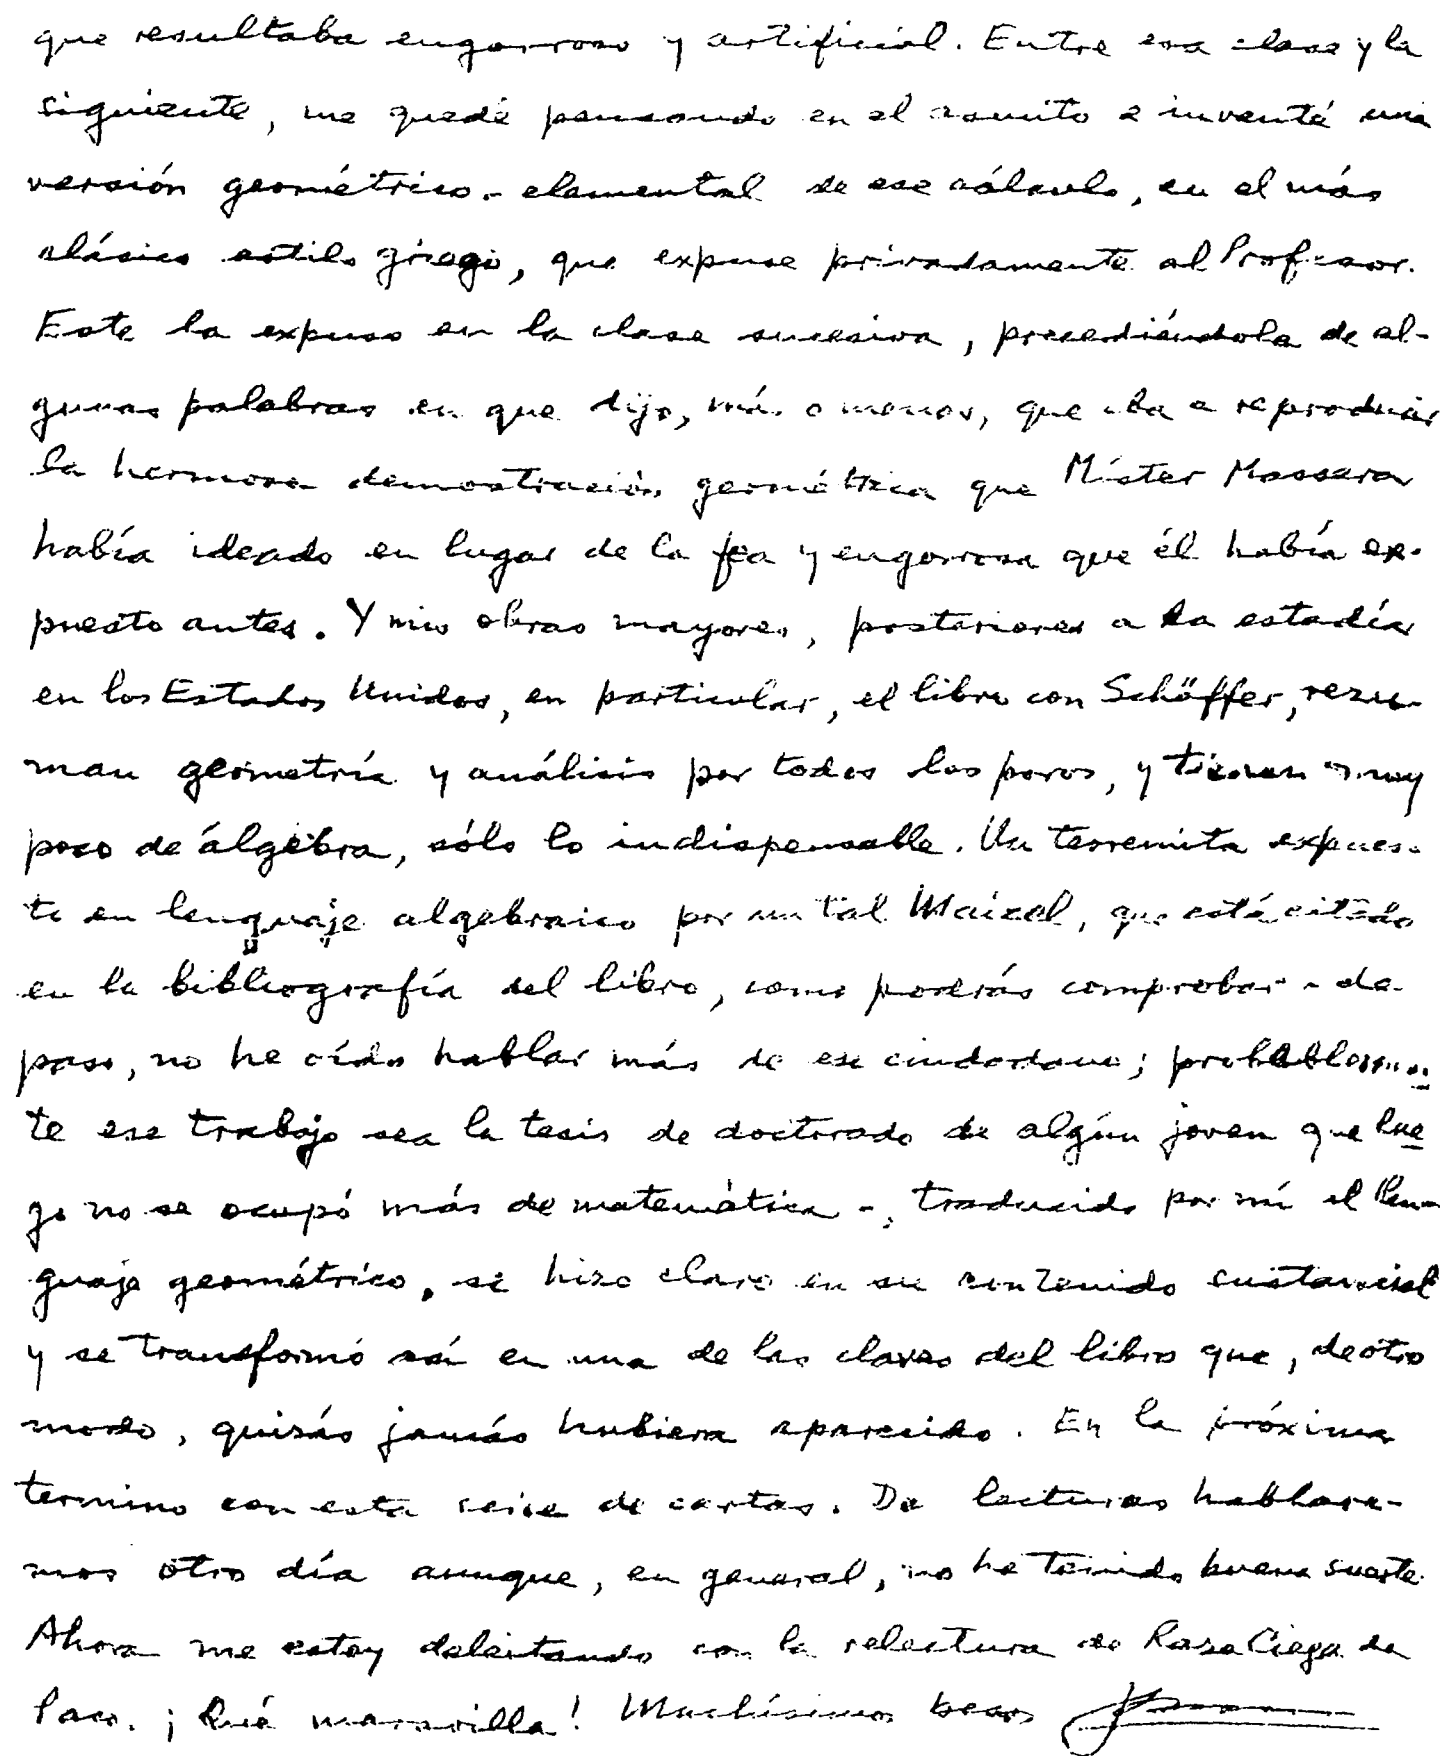 que resultaba engorroso y artificial. Entre esa clase y la
siguiente, me quedé pensando en el asunto e inventé una
versión geométrico-elemental de ese cálculo, en el más
clásico estilo griego, que expuse privadamente al Profesor.
Este la expuso en la clase sucesiva, precediéndola de al-
gunas palabras en que dijo, más o menos, que iba a reproducir
la hermosa demostración geométrica que Míster Massera
había ideado en lugar de la fea y engorrosa que él había ex-
puesto antes. Y mis obras mayores, posteriores a la estadía
en los Estados Unidos, en particular, el libro con Schäffer, rezu-
man geometría y análisis por todos los poros, y tienen muy
poco de álgebra, sólo lo indispensable. Un teoremita expues-
to en lenguaje algebraico por un tal Maizel, que está citado
en la bibliografía del libro, como podrás comprobar - de
paso, no he oído hablar más de ese ciudadano; probablemen
te ese trabajo sea la tesis de doctorado de algún joven que lue
go no se ocupó más de matemática -, traducido por mí al len-
guaje geométrico, se hizo claro en su contenido sustancial
y se transformó así en una de las claves del libro que, de otro
modo, quizás jamás hubiera aparecido. En la próxima
termino con esta serie de cartas. De lecturas hablare-
mos otro día aunque, en general, no he tenido buena suerte.
Ahora me estoy deleitando con la relectura de Rosa Ciega de
Paco. ¡Qué maravilla! Muchísimos besos